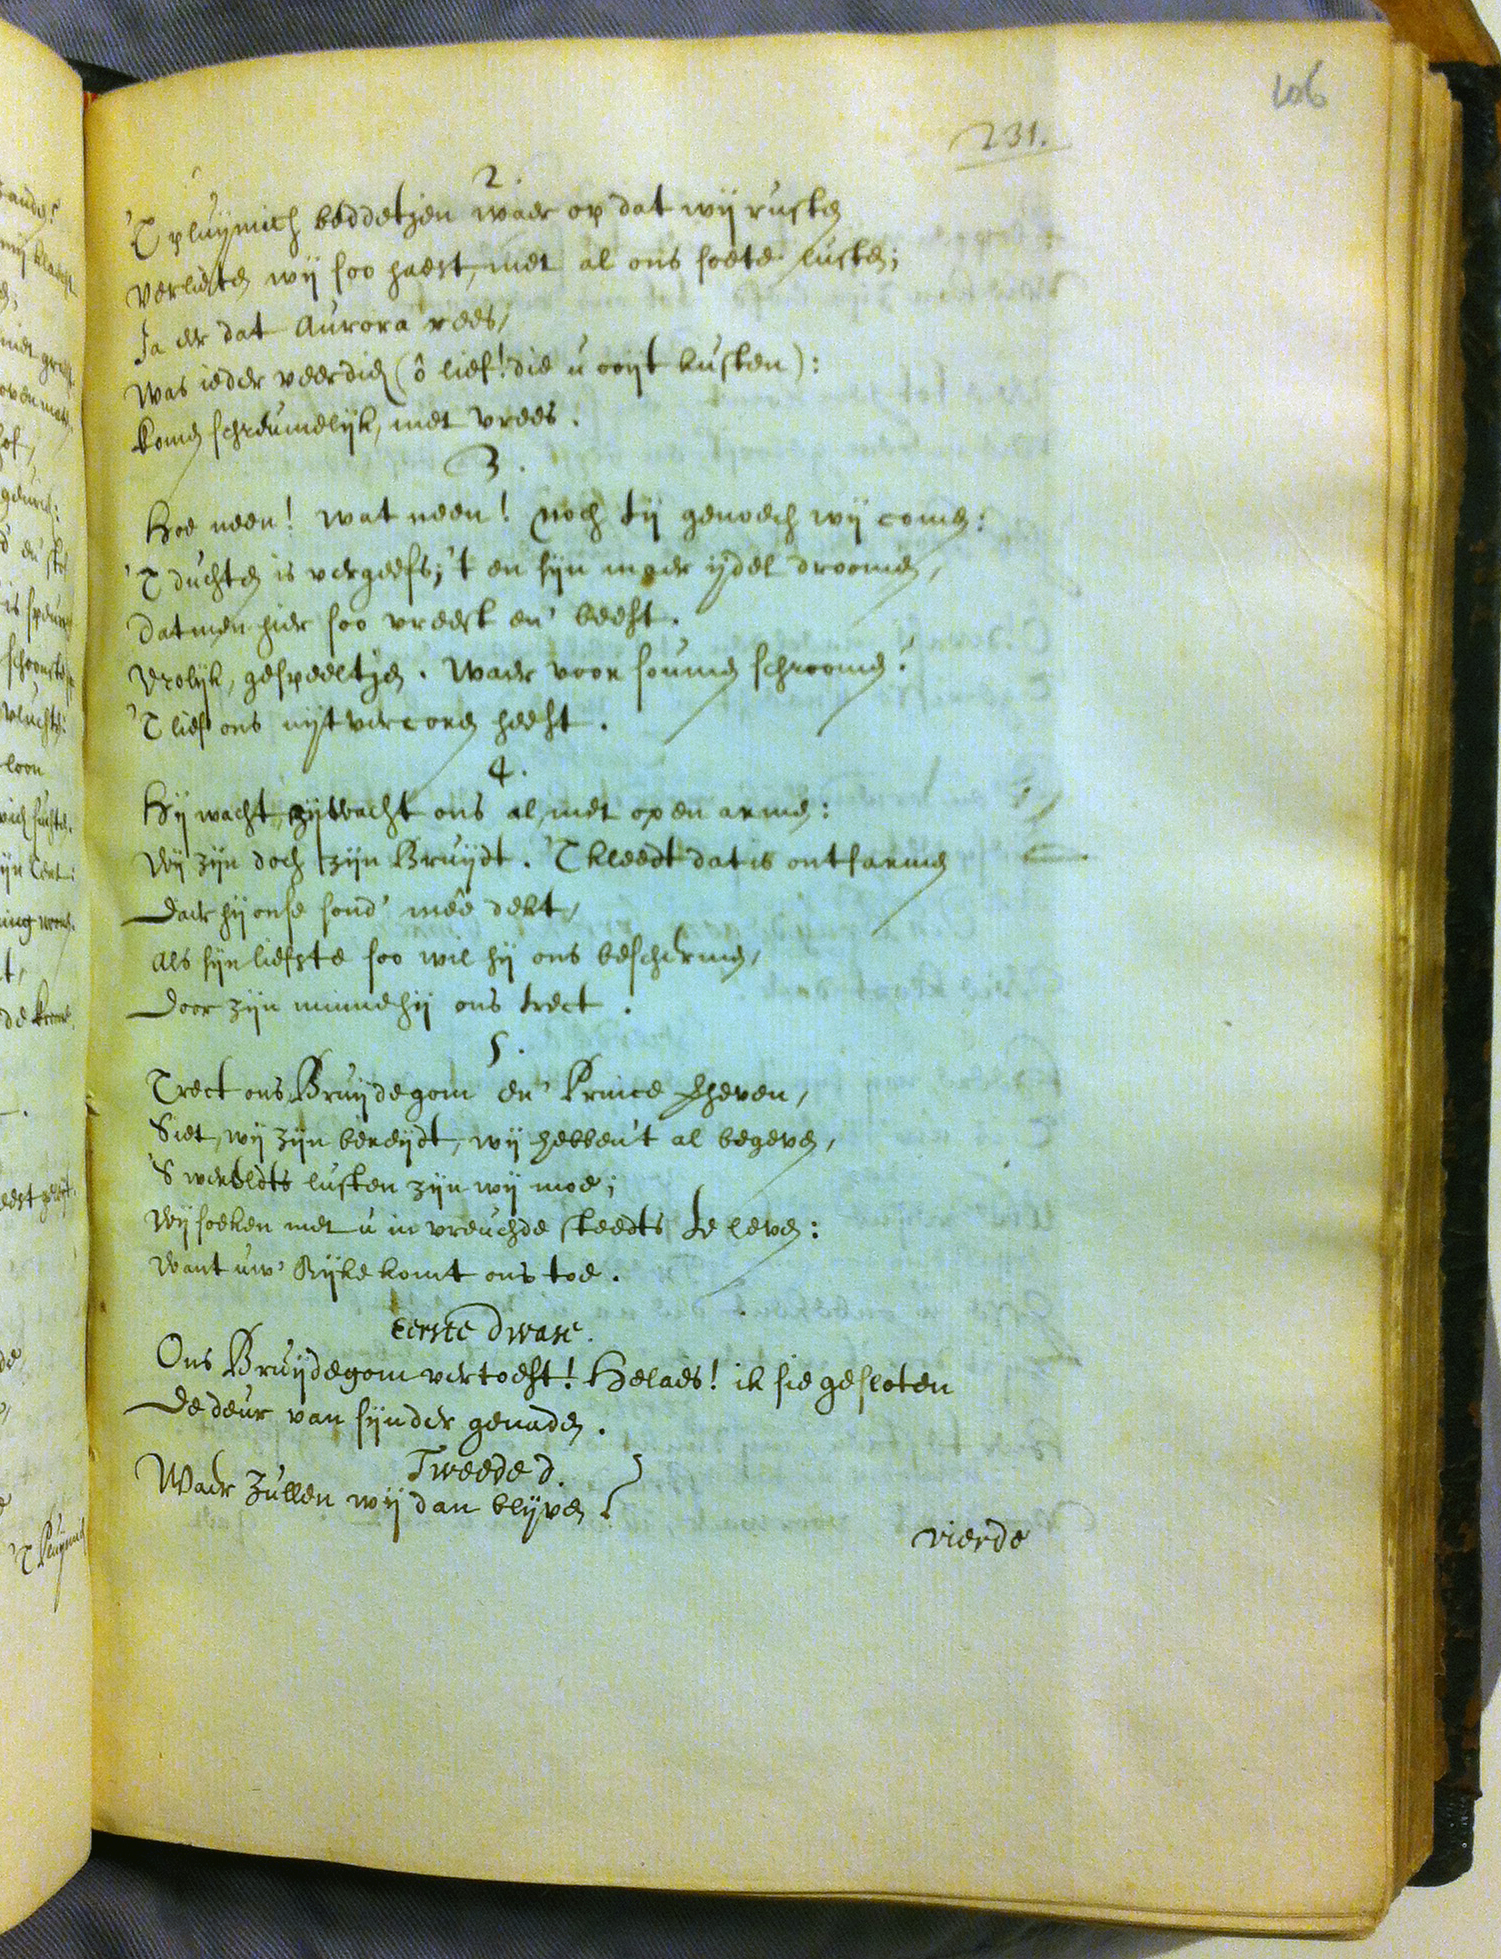 106
231.
2.
'T pluÿmich beddetjen waer op dat wij rusten
Verlieten wij soo haest, met al ons soete lusten;
Ja eer dat Aurora rees,
Was ieder veerdich (ô lief! die u ooijt kusten):
komen schreumelijk, met vrees.
3.
Hoe neen! wat neen! noch tij genoech wij comen:
'T duchten is vergeefs; 't en sijn maer ijdel droomen,
Datmen hier soo vreest en' beeft.
Vrolijk, gespeeltjen. Waer voor soumen schroomen?
'T lief ons uijtvercoren heeft.
4.
Hij wacht, zij wacht ons al, met open armen:
Wij zijn doch zijn Bruijdt. 'T kleedt dat is ontfarmen
Daer hij onse sond' meê dekt,
Als sijn liefste soo wil hij ons beschermen,
Door zijn minne hij ons trect.
5.
Trect ons, Bruijdegom en' Prince verheven,
Siet, wij zijn bereijdt, wij hebben't al begeven,
'S wereldts lusten zijn wij moe;
Wij soeken met u in vreuchde steedts te leven:
Want uw' Rijke komt ons toe.
Eerste Dwase.
Ons Bruijdegom vertoeft! Helaes! ik sie gesloten
De deur van sijnder genaden.
Tweede d.
Waer zullen wij dan blijven?
vierde